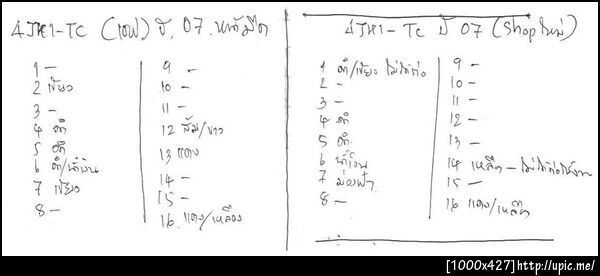 4JH1-TC (เดิม) ปี. 07. หน้ามืด
1 –
2 เขียว
3 –
4 ดำ
5 ดำ
6 ดำ/น้ำเงิน
7 เขียว
8 –
9 –
10 –
11 –
12 ส้ม/ขาว
13 แดง
14 –
15 –
16. แดง/เหลือง
4JH1-TC ปี 07 (Shop ใหม่)
1 ดำ/เขียว ไม่ได้ต่อ
2 –
3 –
4 ดำ
5 ดำ
6 น้ำเงิน
7 ม่วงฟ้า
8 –
9 –
10 –
11 –
12 –
13 –
14 เหลือง – ไม่ได้ต่อใช้งาน
15 –
16 แดง/เหลือง
[1000x427]http://upic.me/